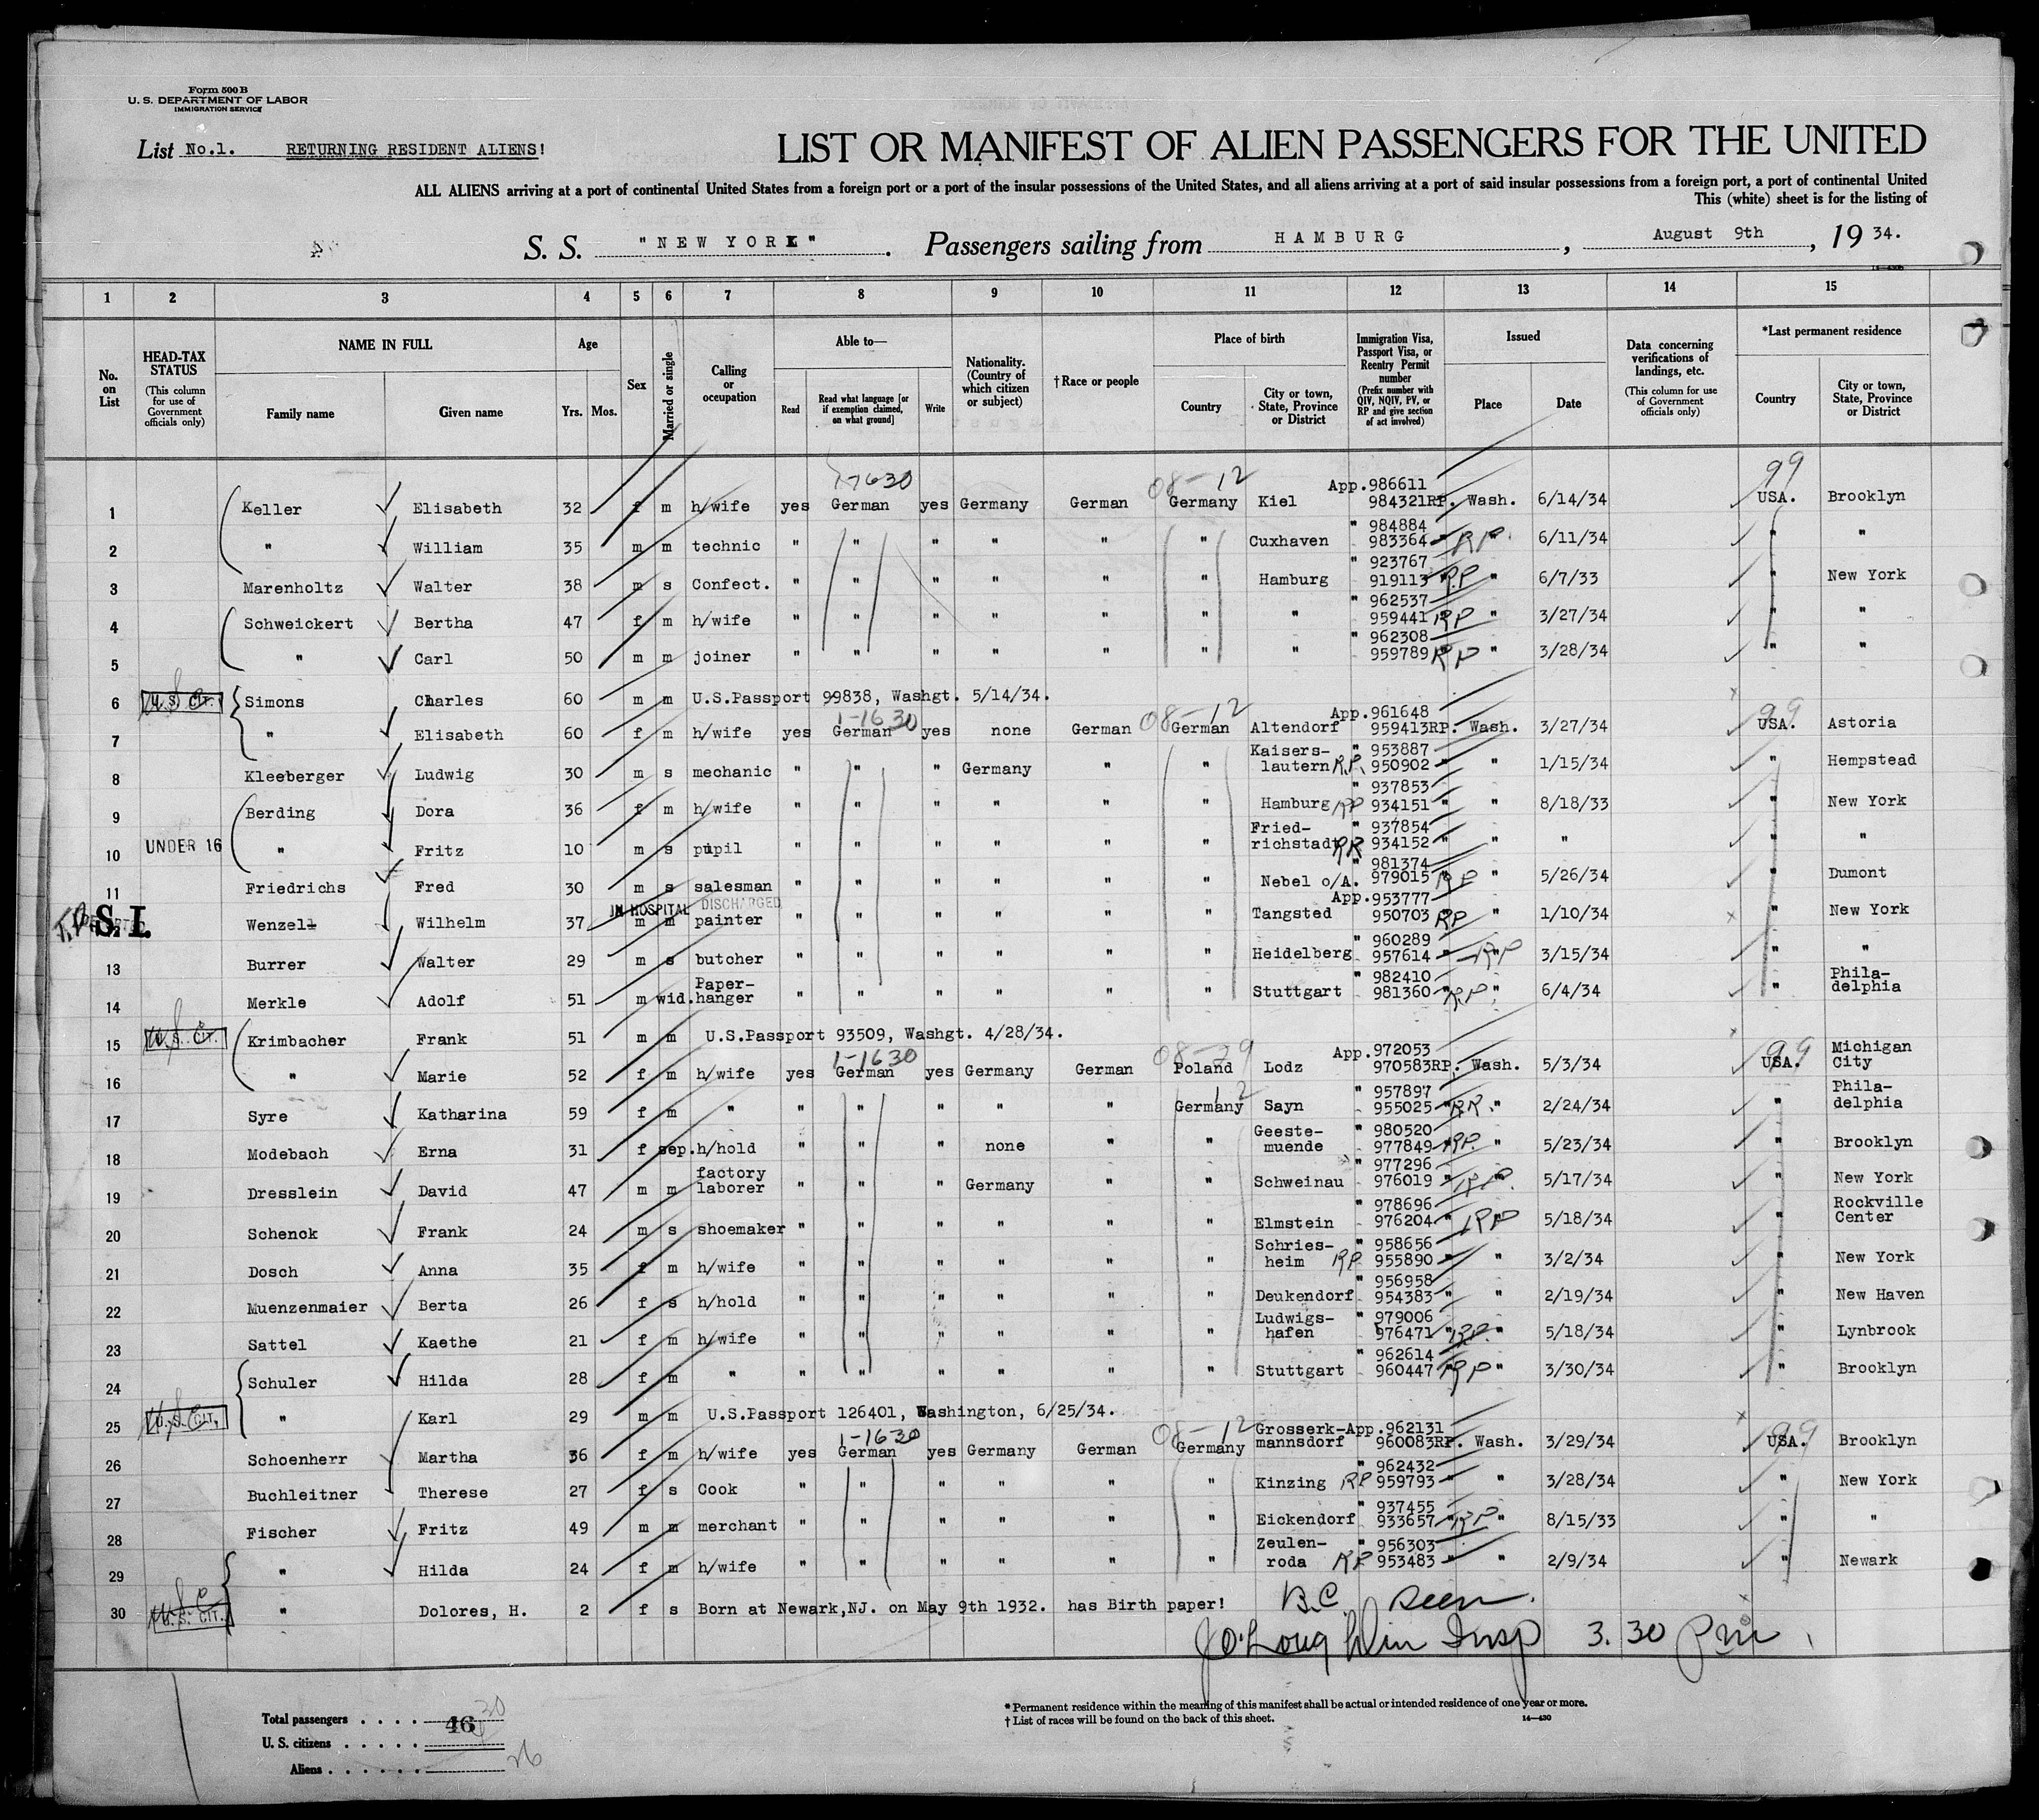 Form 500 B
U. S. DEPARTMENT OF LABOR
IMMIGRATION SERVICE
List No.1. RETURNING RESIDENT ALIENS!
LIST OR MANIFEST OF ALIEN PASSENGERS FOR THE UNITED
ALL ALIENS arriving at a port of continental United States from a foreign port or a port of the insular possessions of the United States, and all aliens arriving at a port of said insular possessions from a foreign port, a port of continental United
This (white) sheet is for the listing of
S. S. "NEW YORK". Passengers sailing from HAMBURG, August 9th, 19 34.
1 2 3 4 5 6 7 8 9 10 11 12 13 14 15
No. on List
HEAD-TAX STATUS (This column for use of Government officials only)
NAME IN FULL
Family name Given name
Age
Yrs. Mos.
Sex
Married or single
Calling or occupation
Able to—
Read Read what language [or if exemption claimed, on what ground] Write
Nationality. (Country of which citizen or subject)
† Race or people
Place of birth
Country City or town, State, Province or District
Immigration Visa, Passport Visa, or Reentry Permit number (Prefix number with QIV, NQIV, PV, or RP and give section of act involved)
Issued
Place Date
Data concerning verifications of landings, etc. (This column for use of Government officials only)
*Last permanent residence
Country City or town, State, Province or District
08-12 99
App.986611
1 Keller Elisabeth 32 f m h/wife yes German yes Germany German Germany Kiel 984321RP. Wash. 6/14/34 USA. Brooklyn
" 984884
2 " William 35 m m technic " " " " " " Cuxhaven 983364 " RP " 6/11/34 " "
" 923767
3 Marenholtz Walter 38 m s Confect. " " " " " " Hamburg 919113 " R.P " 6/7/33 " New York
" 962537
4 Schweickert Bertha 47 f m h/wife " " " " " " " 959441 " RP " 3/27/34 " "
" 962308
5 " Carl 50 m m joiner " " " " " " " 959789 " RP " 3/28/34 " "
6 U.S. CIT. Simons Charles 60 m m U.S.Passport 99838, Washgt. 5/14/34.
1-1630 08-12 App.961648 99
7 " Elisabeth 60 f m h/wife yes German yes none German German Altendorf 959413RP. Wash. 3/27/34 USA. Astoria
Kaisers- " 953887
8 Kleeberger Ludwig 30 m s mechanic " " " Germany " " lautern R.P. 950902 " " 1/15/34 " Hempstead
" 937853
9 Berding Dora 36 f m h/wife " " " " " " Hamburg RP 934151 " " 8/18/33 " New York
Fried- " 937854
10 UNDER 16 " Fritz 10 m s pupil " " " " " " richstadt RP 934152 " " " " "
" 981374
11 Friedrichs Fred 30 m s salesman " " " " " " Nebel o/A. 979015 " RP " 5/26/34 " Dumont
IN HOSPITAL DISCHARGED App.953777
S.I. Wenzel Wilhelm 37 m m painter " " " " " " Tangsted 950703 RP " 1/10/34 " New York
" 960289
13 Burrer Walter 29 m s butcher " " " " " " Heidelberg 957614 " RP " 3/15/34 " "
Paper- " 982410 Phila-
14 Merkle Adolf 51 m wid. hanger " " " " " " Stuttgart 981360 " R.P. " 6/4/34 " delphia
15 U.S. CIT. Krimbacher Frank 51 m m U.S.Passport 93509, Washgt. 4/28/34.
1-1630 08-29 App.972053 99 Michigan
16 " Marie 52 f m h/wife yes German yes Germany German Poland Lodz 970583RP. Wash. 5/3/34 USA. City
12 " 957897 Phila-
17 Syre Katharina 59 f m " " " " " " Germany Sayn 955025 " RP. " 2/24/34 " delphia
Geeste- " 980520
18 Modebach Erna 31 f sep. h/hold " " " none " " muende 977849 " RP. " 5/23/34 " Brooklyn
factory " 977296
19 Dresslein David 47 m m laborer " " " Germany " " Schweinau 976019 " RP. " 5/17/34 " New York
" 978696 Rockville
20 Schenck Frank 24 m s shoemaker " " " " " " Elmstein 976204 " RP " 5/18/34 " Center
Schries- " 958656
21 Dosch Anna 35 f m h/wife " " " " " " heim RP 955890 " " 3/2/34 " New York
" 956958
22 Muenzenmaier Berta 26 f s h/hold " " " " " " Deukendorf 954383 " " 2/19/34 " New Haven
Ludwigs- " 979006
23 Sattel Kaethe 21 f m h/wife " " " " " " hafen 976471 " RP. " 5/18/34 " Lynbrook
" 962614
24 Schuler Hilda 28 f m " " " " " " " Stuttgart 960447 " RP " 3/30/34 " Brooklyn
25 U.S. CIT. " Karl 29 m m U.S.Passport 126401, Washington, 6/25/34.
1-1630 08-12 Grosserk- App.962131 99
26 Schoenherr Martha 36 f m h/wife yes German yes Germany German Germany mannsdorf 960083RP. Wash. 3/29/34 USA. Brooklyn
" 962432
27 Buchleitner Therese 27 f s Cook " " " " " " Kinzing RP 959793 " " 3/28/34 " New York
" 937455
28 Fischer Fritz 49 m m merchant " " " " " " Eickendorf 933657 " RP " 8/15/33 " "
Zeulen- " 956303
29 " Hilda 24 f m h/wife " " " " " " roda RP 953483 " " 2/9/34 " Newark
30 U.S. CIT. " Dolores, H. 2 f s Born at Newark,NJ. on May 9th 1932. has Birth paper! B.C. seen.
J O'Loughlin Insp 3.30 pm
Total passengers . . . . 46 30
U. S. citizens . . . . .
Aliens . . . . . . 26
* Permanent residence within the meaning of this manifest shall be actual or intended residence of one year or more.
† List of races will be found on the back of this sheet.
14—430